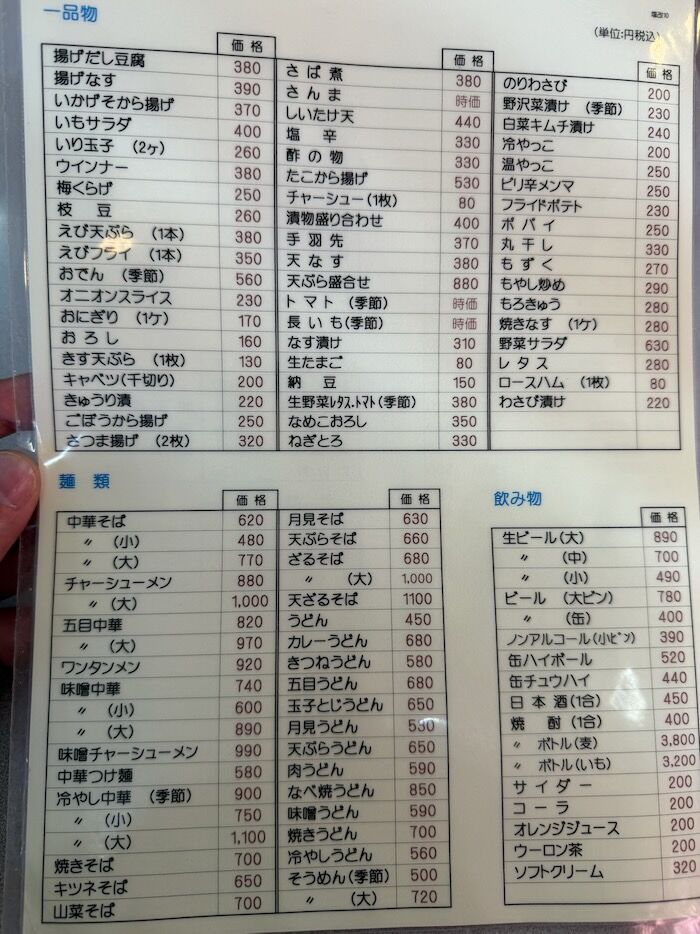 一品物
(単位:円税込)
価格
揚げだし豆腐 380
揚げなす 390
いかげそから揚げ 370
いもサラダ 400
いり玉子 (2ヶ) 260
ウインナー 380
梅くらげ 250
枝 豆 260
えび天ぷら (1本) 380
えびフライ (1本) 350
おでん (季節) 560
オニオンスライス 230
おにぎり (1ケ) 170
おろし 160
きす天ぷら (1枚) 130
キャベツ(千切り) 200
きゅうり漬 220
ごぼうから揚げ 250
さつま揚げ (2枚) 320
価格
さば煮 380
さんま 時価
しいたけ天 440
塩 辛 330
酢の物 330
たこから揚げ 530
チャーシュー(1枚) 80
漬物盛り合わせ 400
手羽先 370
天なす 380
天ぷら盛合せ 880
トマト (季節) 時価
長いも(季節) 時価
なす漬け 310
生たまご 80
納 豆 150
生野菜ﾚﾀｽ.ﾄﾏﾄ(季節) 380
なめこおろし 350
ねぎとろ 330
価格
のりわさび 200
野沢菜漬け (季節) 230
白菜キムチ漬け 240
冷やっこ 200
温やっこ 250
ピリ辛メンマ 250
フライドポテト 230
ポパイ 250
丸干し 330
もずく 270
もやし炒め 290
もろきゅう 280
焼きなす (1ケ) 280
野菜サラダ 630
レタス 280
ロースハム (1枚) 80
わさび漬け 220
麺 類
価格
中華そば 620
〃 (小) 480
〃 (大) 770
チャーシューメン 880
〃 (大) 1,000
五目中華 820
〃 (大) 970
ワンタンメン 920
味噌中華 740
〃 (小) 600
〃 (大) 890
味噌チャーシューメン 990
中華つけ麺 580
冷やし中華 (季節) 900
〃 (小) 750
〃 (大) 1,100
焼きそば 700
キツネそば 650
山菜そば 700
価格
月見そば 630
天ぷらそば 660
ざるそば 680
〃 (大) 1,000
天ざるそば 1100
うどん 450
カレーうどん 680
きつねうどん 580
五目うどん 680
玉子とじうどん 650
月見うどん 530
天ぷらうどん 650
肉うどん 590
なべ焼うどん 850
味噌うどん 590
焼きうどん 700
冷やしうどん 560
そうめん(季節) 500
〃 (大) 720
飲み物
価格
生ビール(大) 890
〃 (中) 700
〃 (小) 490
ビール (大ビン) 780
〃 (缶) 400
ノンアルコール(小ﾋﾞﾝ) 390
缶ハイボール 520
缶チュウハイ 440
日本酒(1合) 450
焼 酎(1合) 400
〃 ボトル(麦) 3,800
〃 ボトル(いも) 3,200
サイダー 200
コーラ 200
オレンジジュース 200
ウーロン茶 200
ソフトクリーム 320